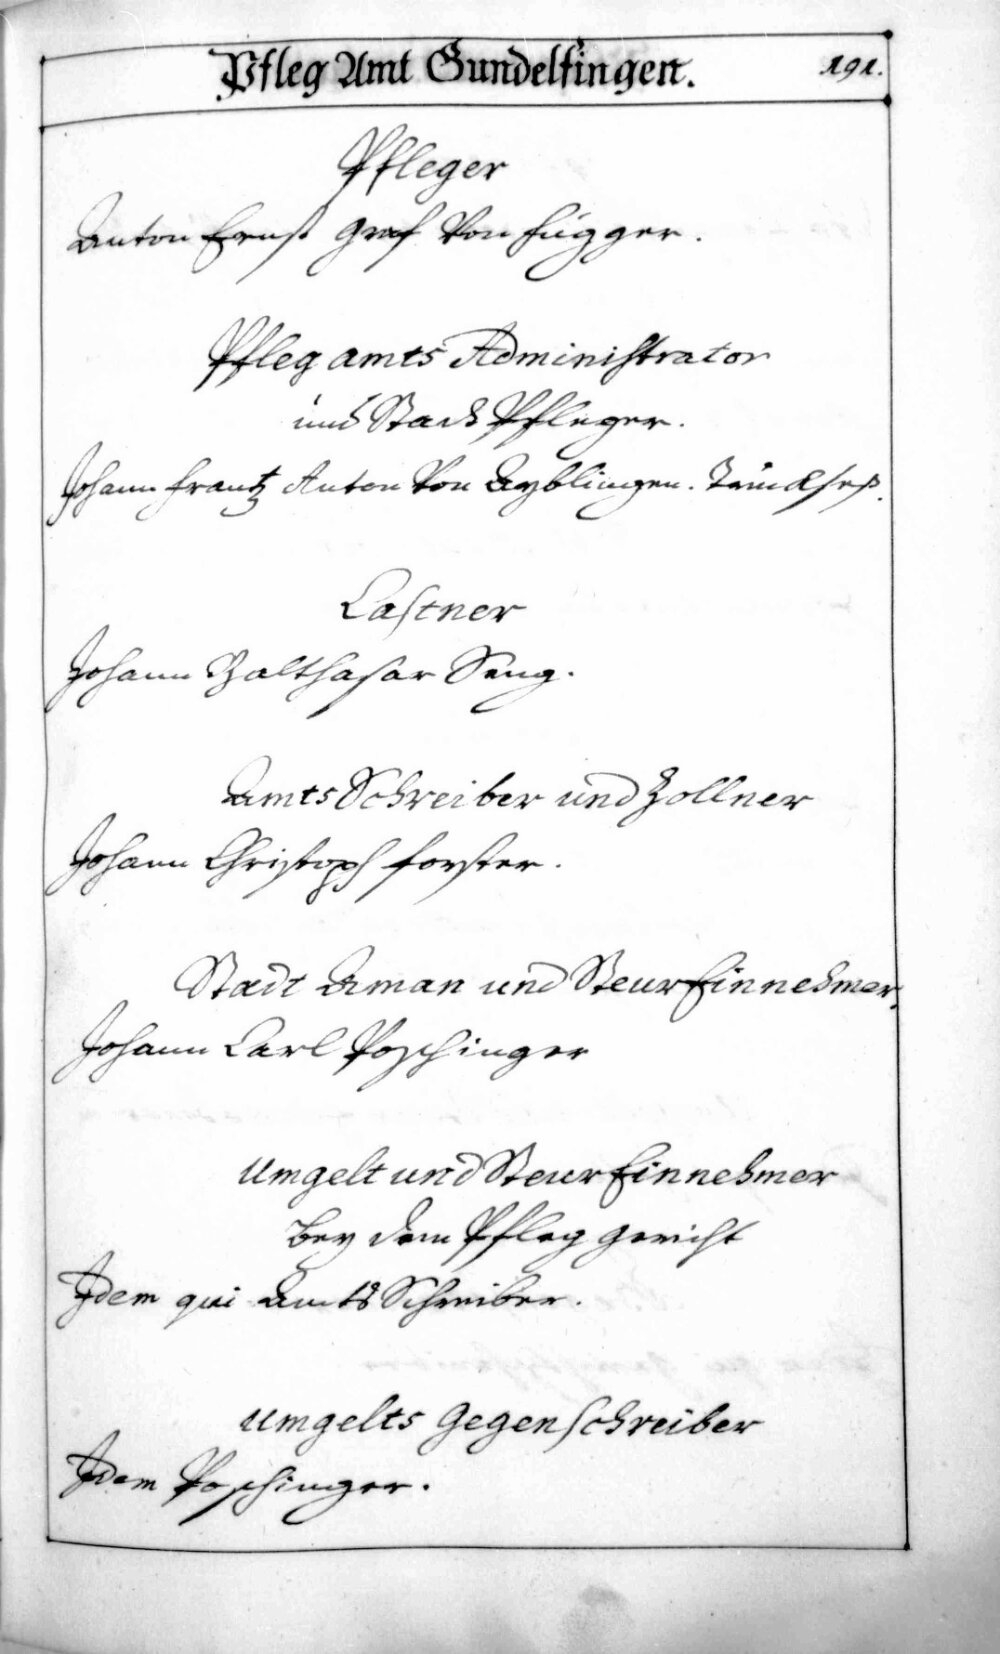 Pfleg Amt Gundelfingen.
191.
Pfleger
Anton Ernst Graf Von Fugger.
Pfleg amts Administrator
und Stadt Pfleger.
Johann Frantz Anton Von Ayblingen. Truchseß.
Castner
Johann Balthasar Seng.
Amts Schreiber und Zollner
Johann Christoph Forster.
Stadt Aman und Steur Einnehmer,
Johann Carl Poschinger
Umgelt und Steur Einnehmer
bey dem Pfleg Gericht
Idem qui Ambts Schreiber.
Umgelts Gegenschreiber
Idem Poschinger.